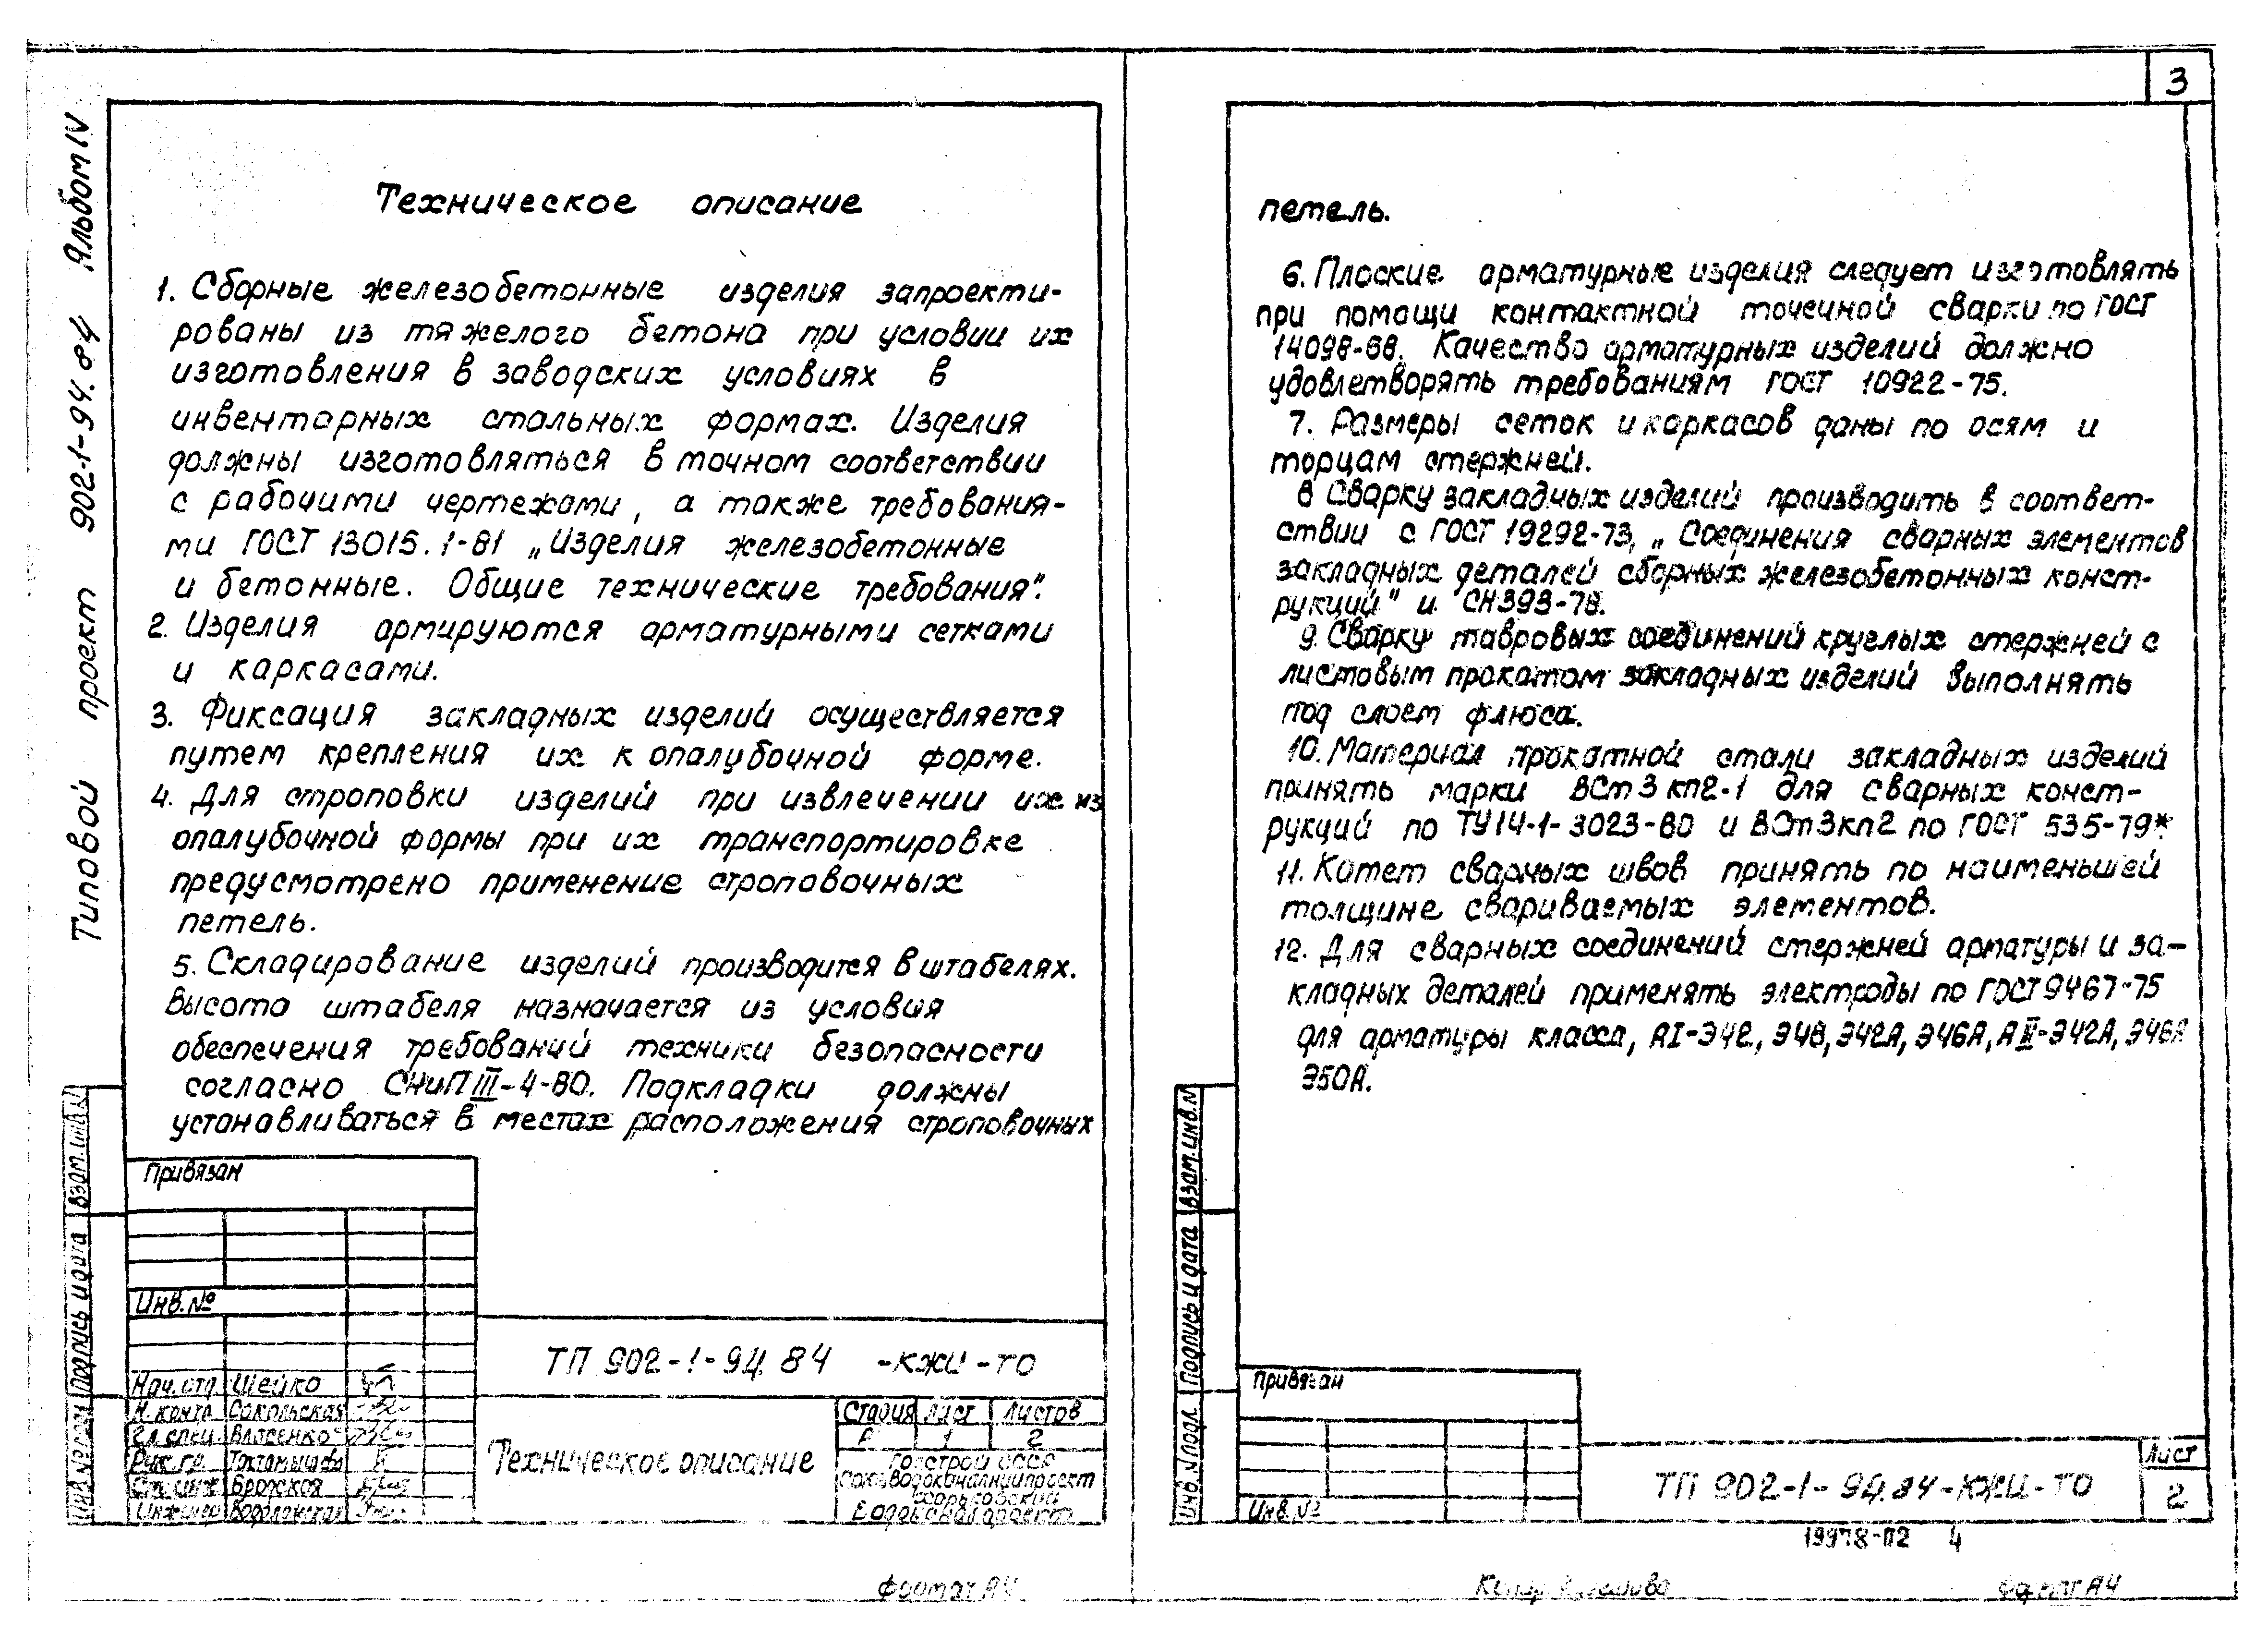 3
Типовой проект 902-1-94.84 Альбом IV
Техническое описание
1. Сборные железобетонные изделия запроекти-
рованы из тяжелого бетона при условии их
изготовления в заводских условиях в
инвентарных стальных формах. Изделия
должны изготовляться в точном соответствии
с рабочими чертежами, а также требования-
ми ГОСТ 13015.1-81 „Изделия железобетонные
и бетонные. Общие технические требования".
2. Изделия армируются арматурными сетками
и каркасами.
3. Фиксация закладных изделий осуществляется
путем крепления их к опалубочной форме.
4. Для строповки изделий при извлечении их из
опалубочной формы при их транспортировке
предусмотрено применение строповочных
петель.
5. Складирование изделий производится в штабелях.
Высота штабеля назначается из условия
обеспечения требований техники безопасности
согласно СНиП III-4-80. Подкладки должны
устанавливаться в местах расположения строповочных
Привязан
Инв.№
ТП 902-1-94.84 -КЖИ-ТО
Нач. отд Шейко
Н. контр Сокольская
Гл. спец. Власенко
Рук. гр.
Ст. инж Бродская
Инженер
Техническое описание
Стадия Лист Листов
Р 1 2
Госстрой СССР
Союзводоканалниипроект
Харьковский
Водоканалпроект
Взам. инв.№
Подпись и дата
Инв.№подл
Формат А4
петель.
6. Плоские арматурные изделия следует изготовлять
при помощи контактной точечной сварки по ГОСТ
14098-68. Качество арматурных изделий должно
удовлетворять требованиям ГОСТ 10922-75.
7. Размеры сеток и каркасов даны по осям и
торцам стержней.
8 Сварку закладных изделий производить в соответ-
ствии с ГОСТ 19292-73, „Соединения сварных элементов
закладных деталей сборных железобетонных конст-
рукций" и СН393-78.
9. Сварку тавровых соединений круглых стержней с
листовым прокатом закладных изделий выполнять
под слоем флюса.
10. Материал прокатной стали закладных изделий
принять марки ВСт3кп2-1 для сварных конст-
рукций по ТУ14-1-3023-80 и ВСт3кп2 по ГОСТ 535-79*
11. Катет сварных швов принять по наименьшей
толщине свариваемых элементов.
12. Для сварных соединений стержней арматуры и за-
кладных деталей применять электроды по ГОСТ9467-75
для арматуры класса, АI-Э42, Э46, Э42А, Э46А, АIII-Э42А, Э46А
Э50А.
Взам. инв.№
Подпись и дата
Инв.№подл.
Привязан
Инв.№
ТП 902-1-94.84-КЖИ-ТО
Лист
2
19978-02 4
Формат А4